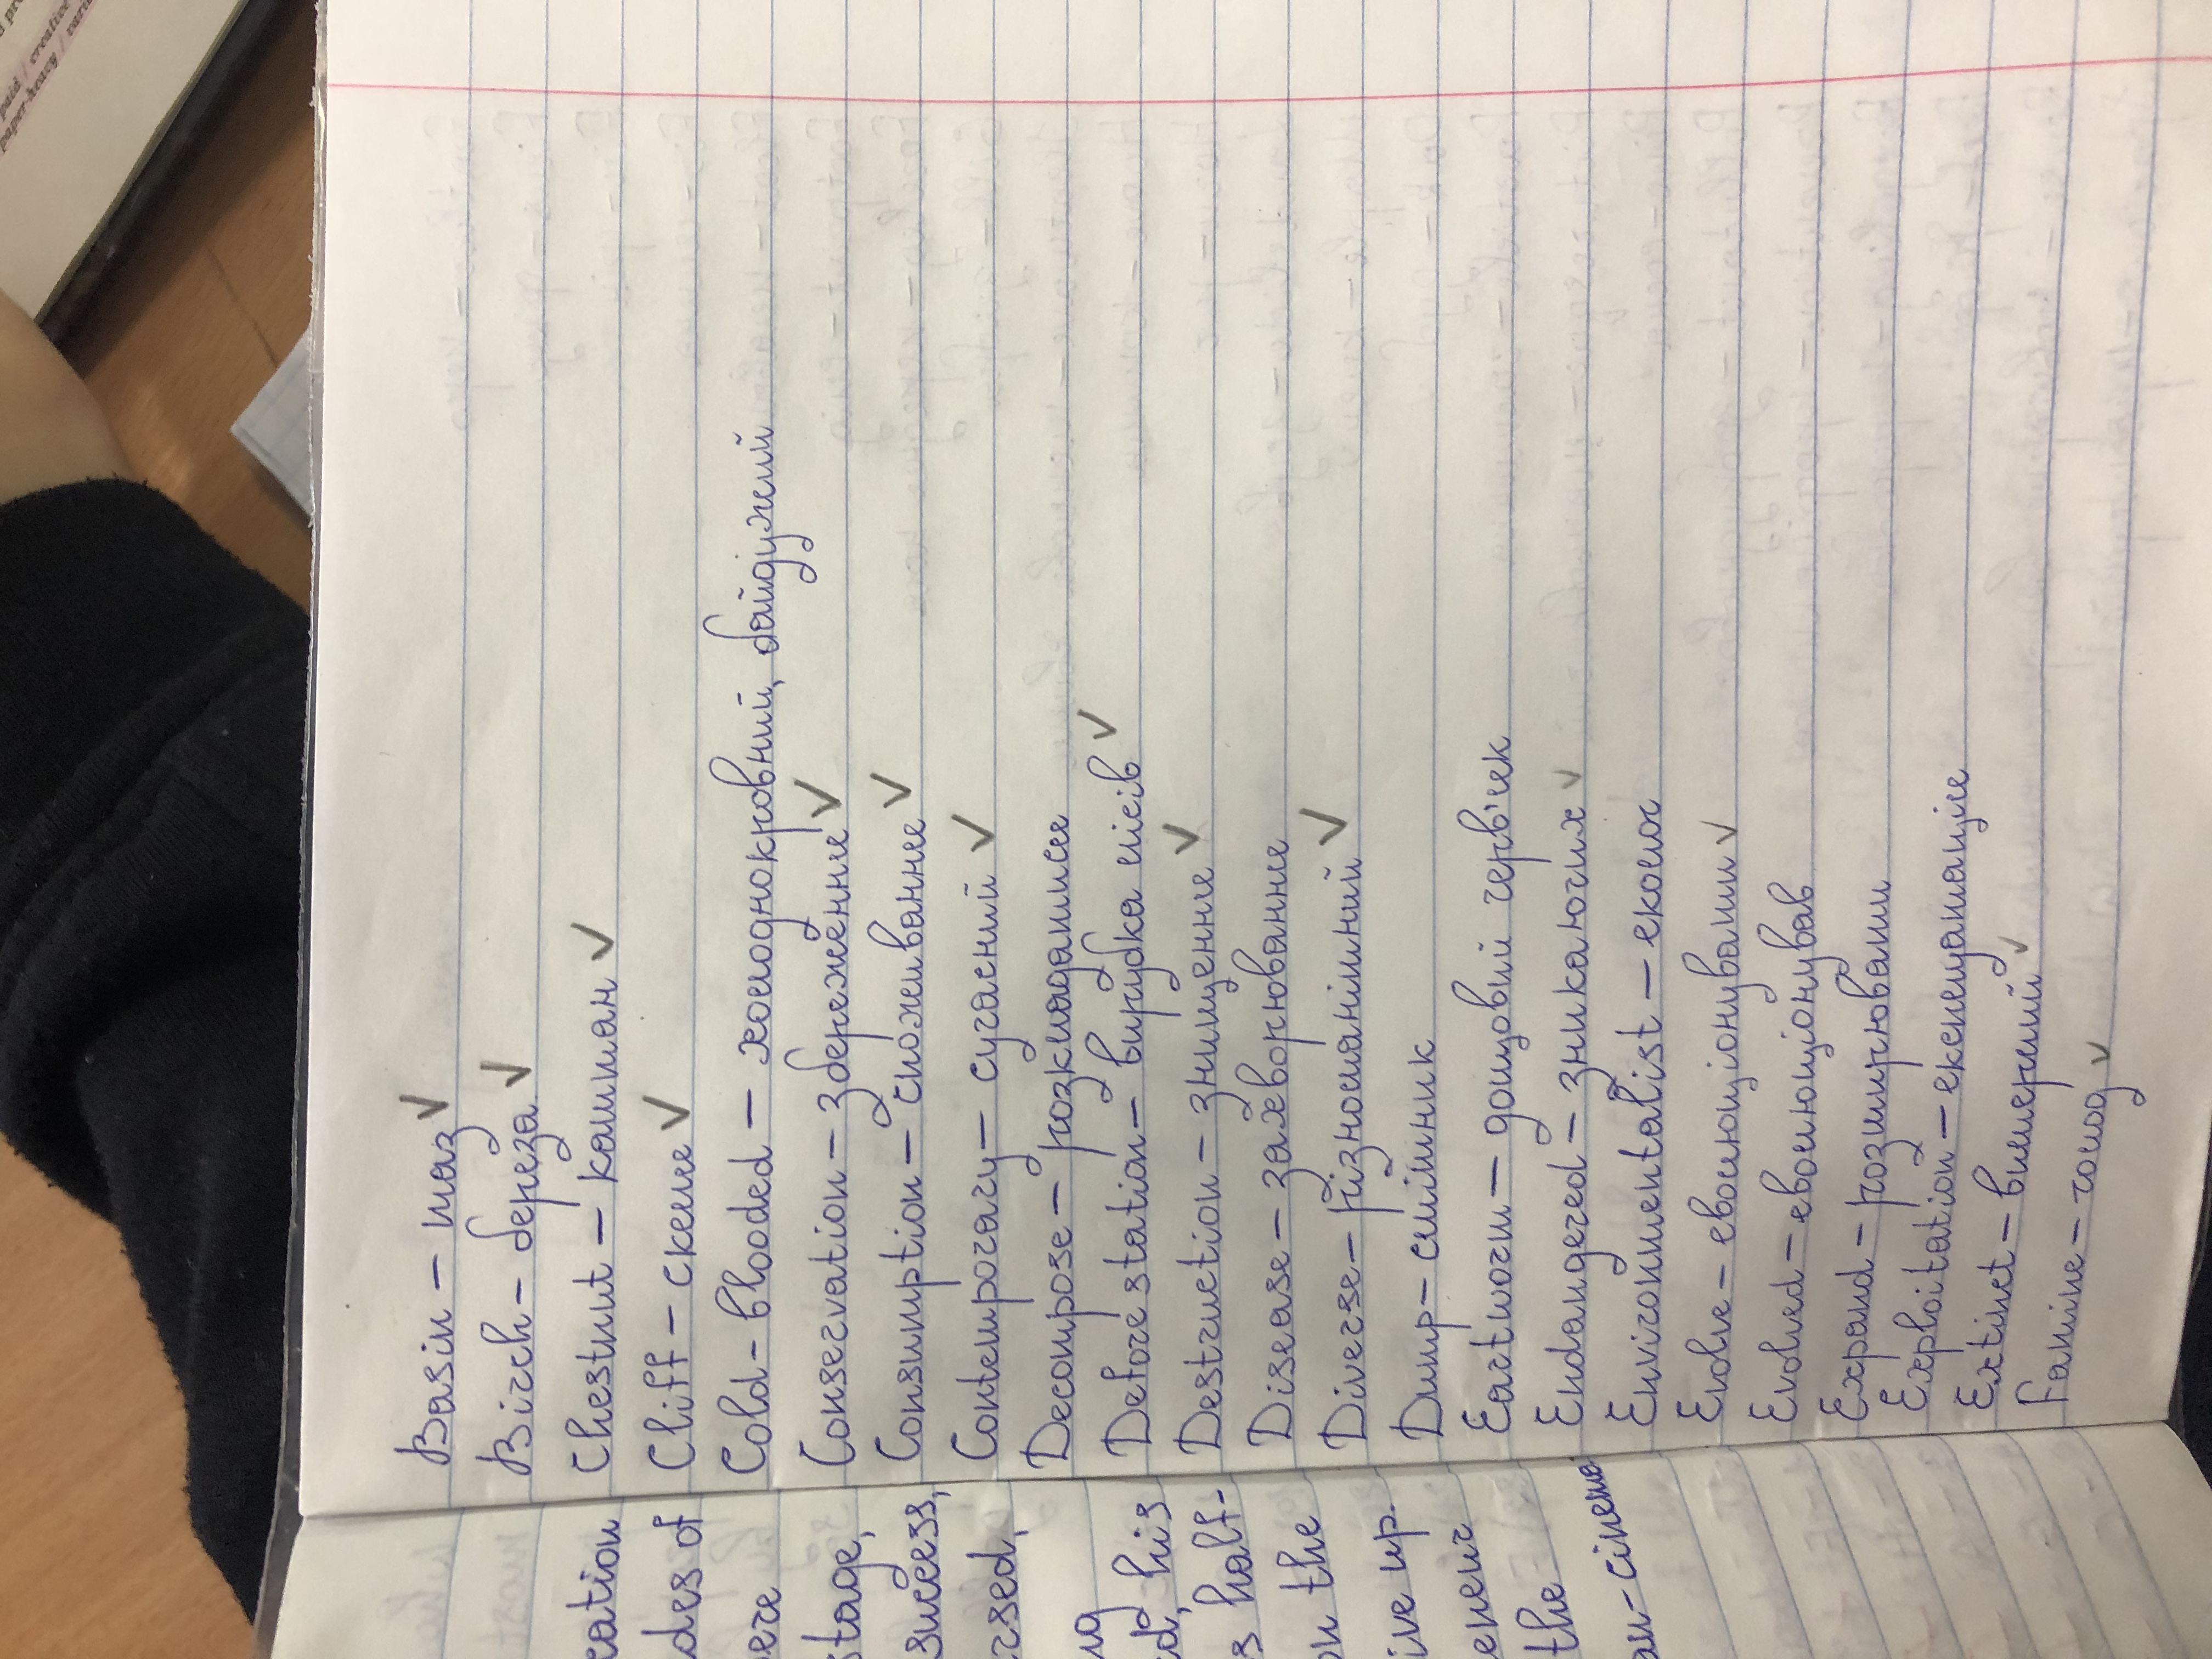 Basin – таз ✓
Birch – береза ✓
Chestnut – каштан ✓
Cliff – скеля ✓
Cold-blooded – холоднокровний, байдужий
Conservation – збереження ✓
Consumption – споживання ✓
Contemporary – сучасний ✓
Decompose – розкладатися
Deforestation – вирубка лісів ✓
Destruction – знищення ✓
Disease – захворювання
Diverse – різноманітний ✓
Dump – смітник
Eartworm – дощовий черв'як
Endangered – зникаючих ✓
Environmentalist – еколог
Evolve – еволюціонувати ✓
Evolved – еволюціонував
Expand – розширювати
Exploitation – експлуатація
Extinct – вимерлий ✓
Famine – голод ✓
cation
des of
ere
stage,
success,
rsed,
ng
ed, his
s half-
on the
ive up.
eneur
the
an-cinema
paid / creative
paper-heavy /